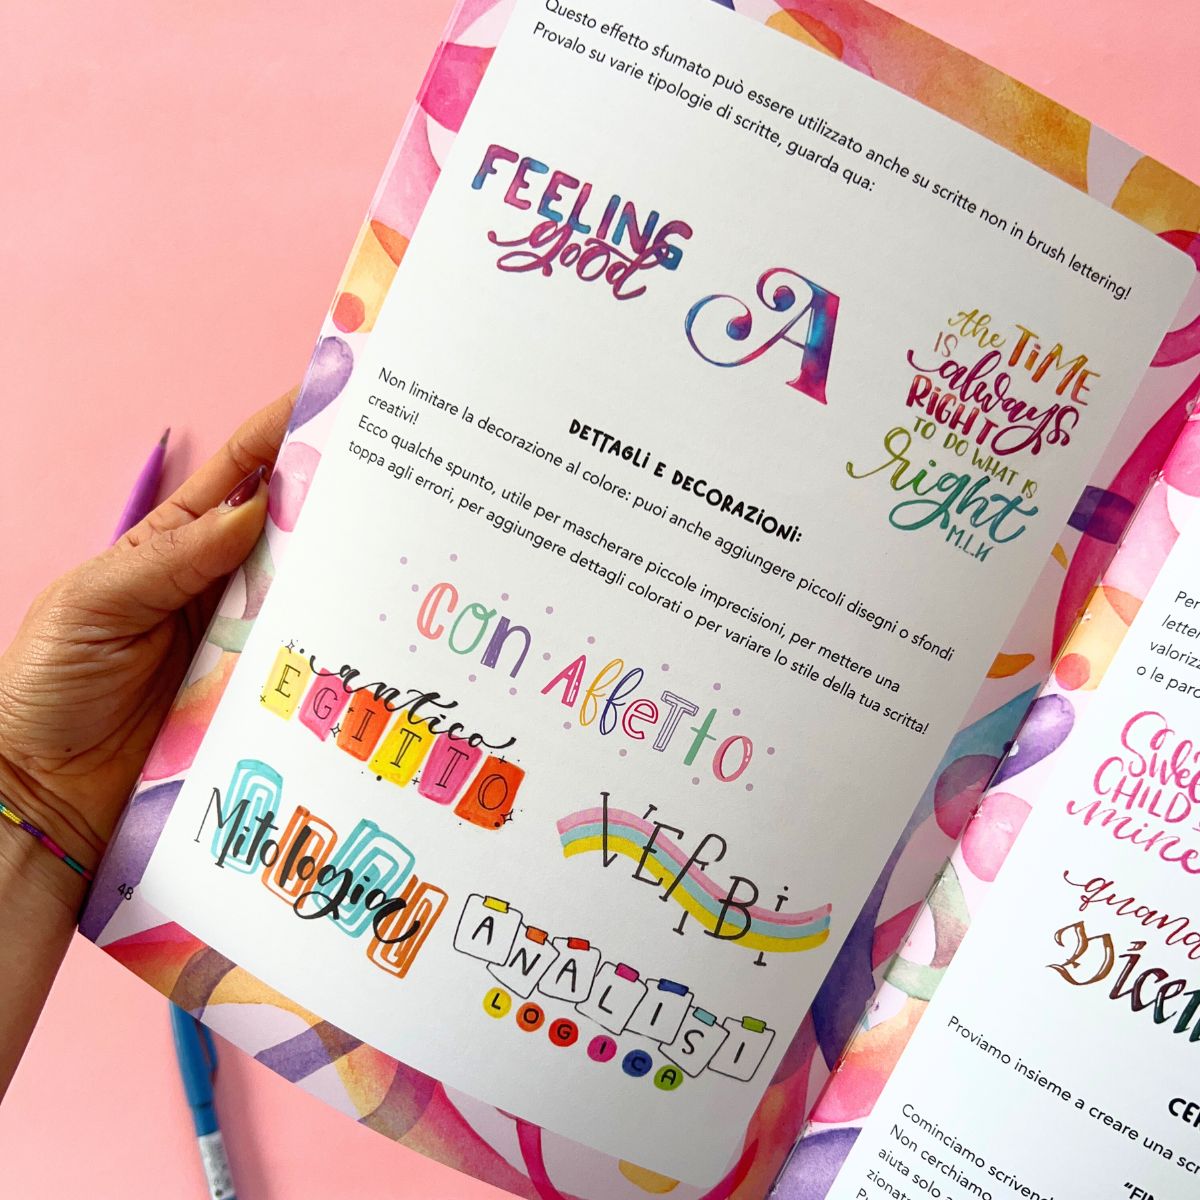 Questo effetto sfumato può essere utilizzato anche su scritte non in brush lettering!
Provalo su varie tipologie di scritte, guarda qua:
FEELING
good
A
the TiME
IS always
RIGHT
TO DO WHAT IS
right
M.L.K
DETTAGLi E DECORAZiONi:
Non limitare la decorazione al colore: puoi anche aggiungere piccoli disegni o sfondi
creativi!
Ecco qualche spunto, utile per mascherare piccole imprecisioni, per mettere una
toppa agli errori, per aggiungere dettagli colorati o per variare lo stile della tua scritta!
con AffeTTo
antico
EGITTO
Mitologia
VERBi
ANALISI
LOGICA
48
Per
letter
valorizz
o le paro
Swee
CHILD
mine
quand
Dicem
Proviamo insieme a creare una scr
CE
"FI
Cominciamo scrivend
Non cerchiamo
aiuta solo a
zionat